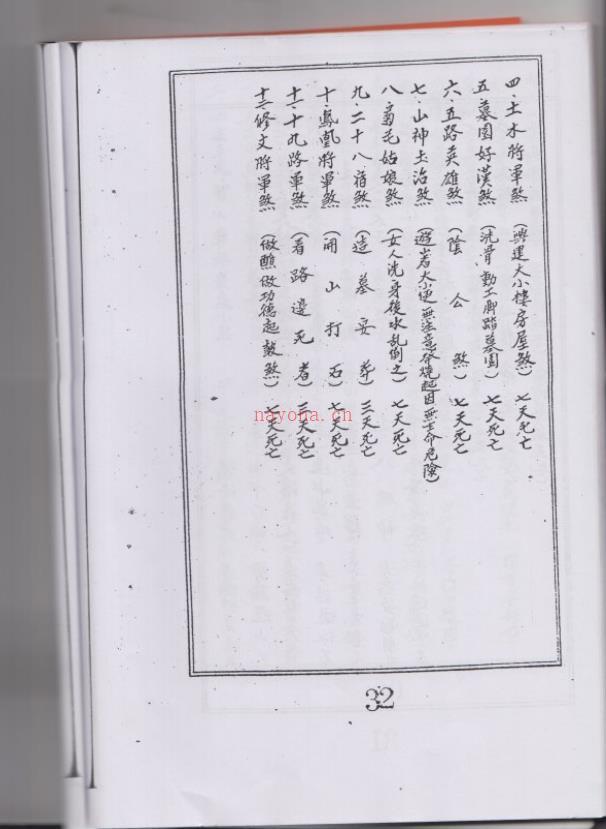 四．土木將軍煞（興建大小樓房屋煞）七天死亡
五．墓園好漢煞（洗骨動工脚踏墓園）七天死亡
六．五路英雄煞（陰公煞）七天死亡
七．山神土治煞（遊岩大小便無注意發燒 因無生命危險）
八．菊花姑娘煞（女人洗身後水乱倒之）七天死亡
九．二十八宿煞（造墓安葬）三天死亡
十．鳳凰將軍煞（開山打石）七天死亡
十一．十九路軍煞（看路邊死者）三天死亡
十二．修文將軍煞（做醮做功德起鼓煞）七天死亡
32
nayona.cn